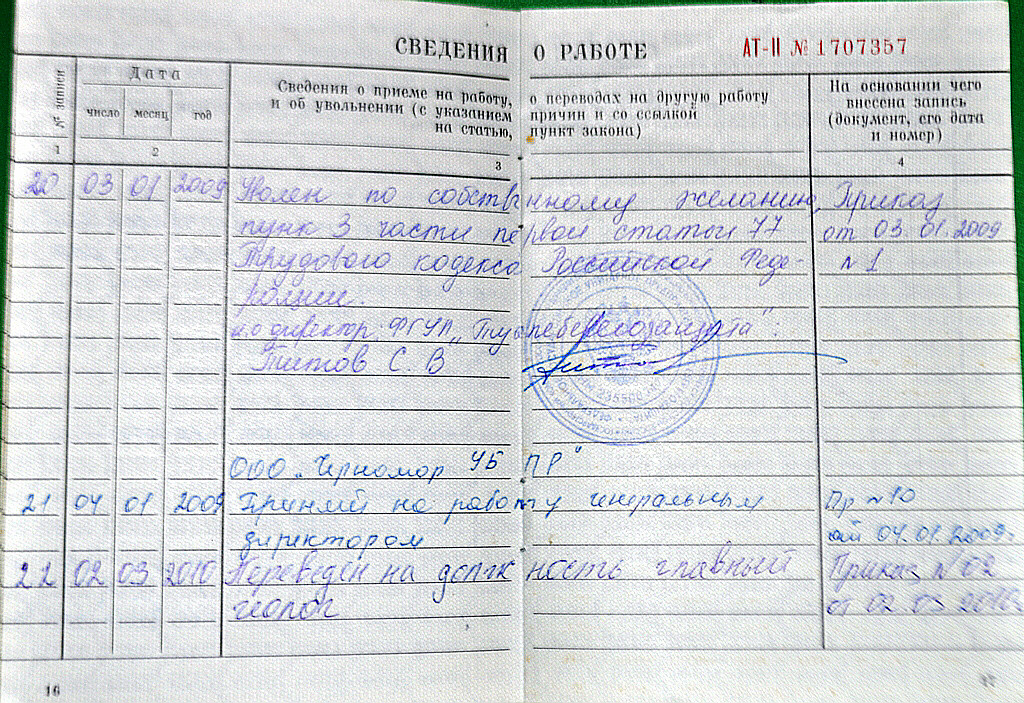 СВЕДЕНИЯ О РАБОТЕ АТ-II № 1707357
№ записи
Дата
число месяц год
Сведения о приеме на работу, о переводах на другую работу
и об увольнении (с указанием причин и со ссылкой
на статью, пункт закона)
На основании чего
внесена запись
(документ, его дата
и номер)
1 2 3 4
20 03 01 2009 Уволен по собственному желанию, Приказ
пунк 3 части первой статьи 77 от 03 01.2009
Трудового кодекса Российской Феде- №1
рации.
и.о директор: ФГУП „Туапсеберегозащита":
Титов С. В
ООО „Черномор УБ ПР"
21 04 01 2009 Принят на работу генеральным Пр №10
директором от 04.01.2009г
22 02 03 2010 Переведен на должность главный Приказ №02
геолог от 02 03 2010г
16 17